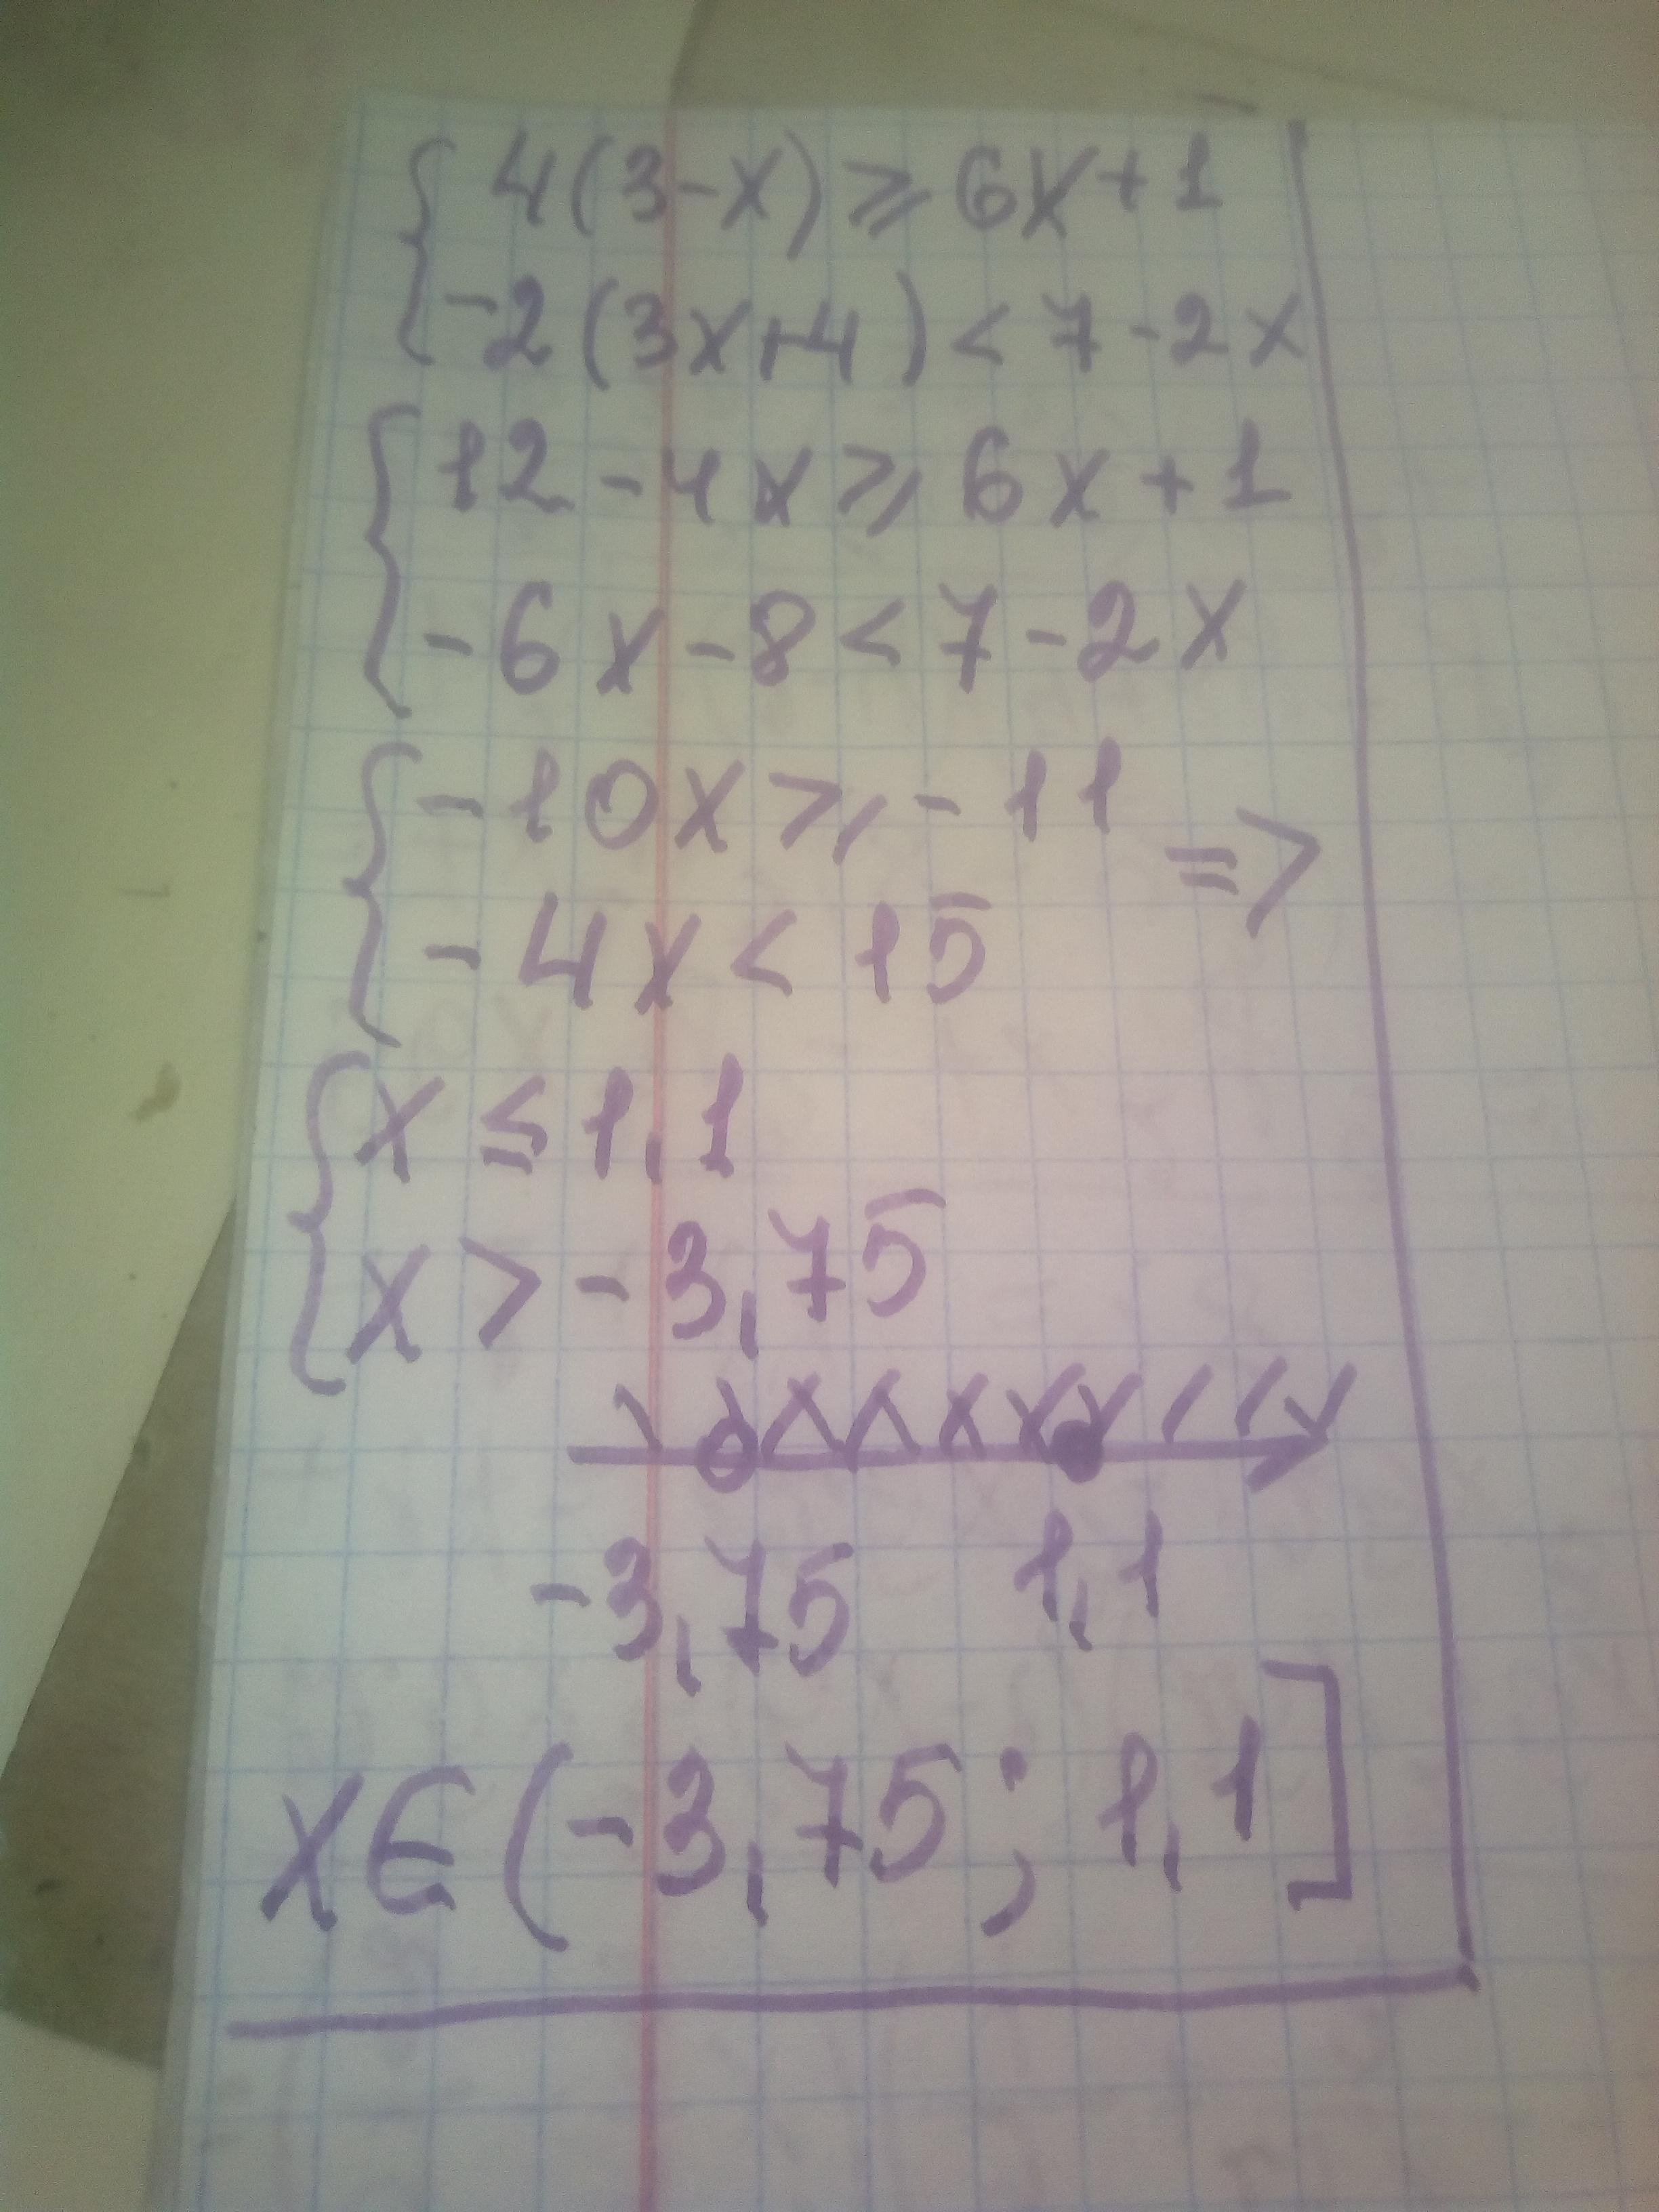 4(3-x)≥6x+1
-2(3x+4)<7-2x
12-4x≥6x+1
-6x-8<7-2x
-10x≥-11 =>
-4x<15
x≤1,1
x>-3,75
-3,75 1,1
x∈(-3,75; 1,1]